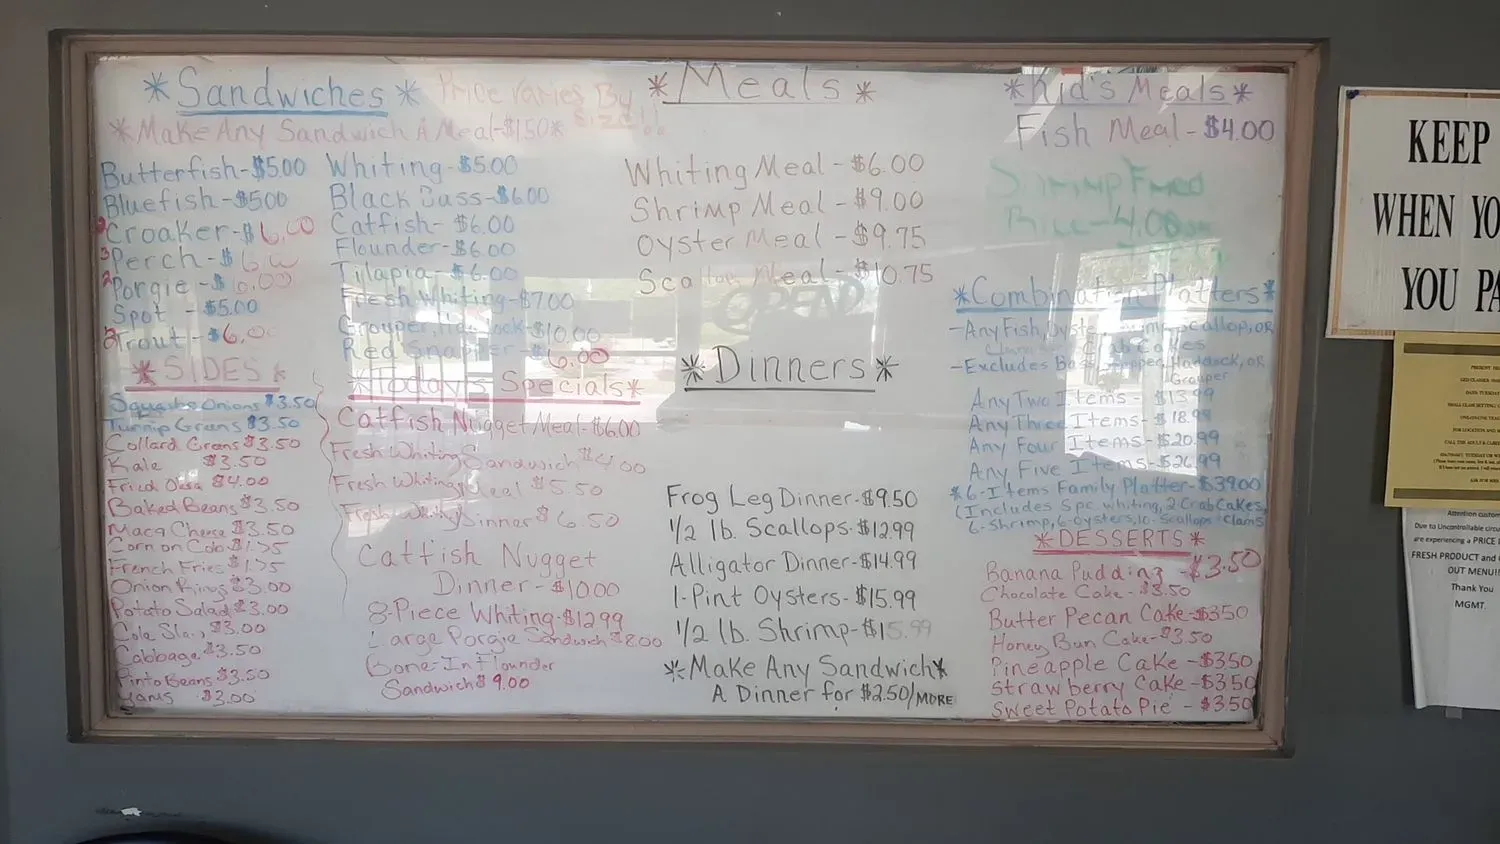 *Sandwiches*
Price varies By Size!!
*Make Any Sandwich A Meal-$1.50*
Butterfish-$5.00
Bluefish-$5.00
Croaker-$6.00
Perch-$6.00
Porgie-$6.00
Spot -$5.00
Trout-$6.00
Whiting-$5.00
Black Bass-$6.00
Catfish-$6.00
Flounder-$6.00
Tilapia-$6.00
Fresh Whiting-$7.00
Grouper, Haddock-$10.00
Red Snapper-$6.00
*SIDES*
Squash+Onions $3.50
Turnip Greens $3.50
Collard Greens $3.50
Kale $3.50
Fried Okra $4.00
Baked Beans $3.50
Mac+Cheese $3.50
Corn on Cob $1.75
French Fries $1.75
Onion Rings $3.00
Potato Salad $3.00
Cole Slaw $3.00
Cabbage $3.50
Pinto Beans $3.50
Yams $3.00
*Today's Specials*
Catfish Nugget Meal-$6.00
Fresh Whiting Sandwich $4.00
Fresh Whiting Meal $5.50
Fresh Whiting Dinner $6.50
Catfish Nugget
Dinner-$10.00
8-Piece Whiting-$12.99
Large Porgie Sandwich $8.00
Bone-In Flounder
Sandwich $9.00
*Meals*
Whiting Meal-$6.00
Shrimp Meal-$9.00
Oyster Meal-$9.75
Scallop Meal-$10.75
*Dinners*
Frog Leg Dinner-$9.50
1/2 lb. Scallops-$12.99
Alligator Dinner-$14.99
1-Pint Oysters-$15.99
1/2 lb. Shrimp-$15.99
*Make Any Sandwich*
A Dinner for $2.50/MORE
*Kid's Meals*
Fish Meal-$4.00
Shrimp Fried
Rice-4.00
*Combination Platters*
-Any Fish, Oyster, Shrimp, Scallop, OR
Clams, Crab Cakes
-Excludes Bass, Snapper, Haddock, OR
Grouper
Any Two Items-$13.99
Any Three Items-$18.99
Any Four Items-$20.99
Any Five Items-$26.99
*6-Items Family Platter-$39.00
(Includes 5pc. whiting, 2 Crab Cakes,
6-Shrimp, 6-oysters, 10-Scallops+Clams
*DESSERTS*
Banana Pudding-$3.50
Chocolate Cake-$3.50
Butter Pecan Cake-$3.50
Honey Bun Cake-$3.50
Pineapple Cake-$3.50
Strawberry Cake-$3.50
Sweet Potato Pie-$3.50
KEEP
WHEN YO
YOU PA
Attention custom
Due to Uncontrollable circu
are experiencing a PRICE
FRESH PRODUCT and
OUT MENU!!
Thank You
MGMT.